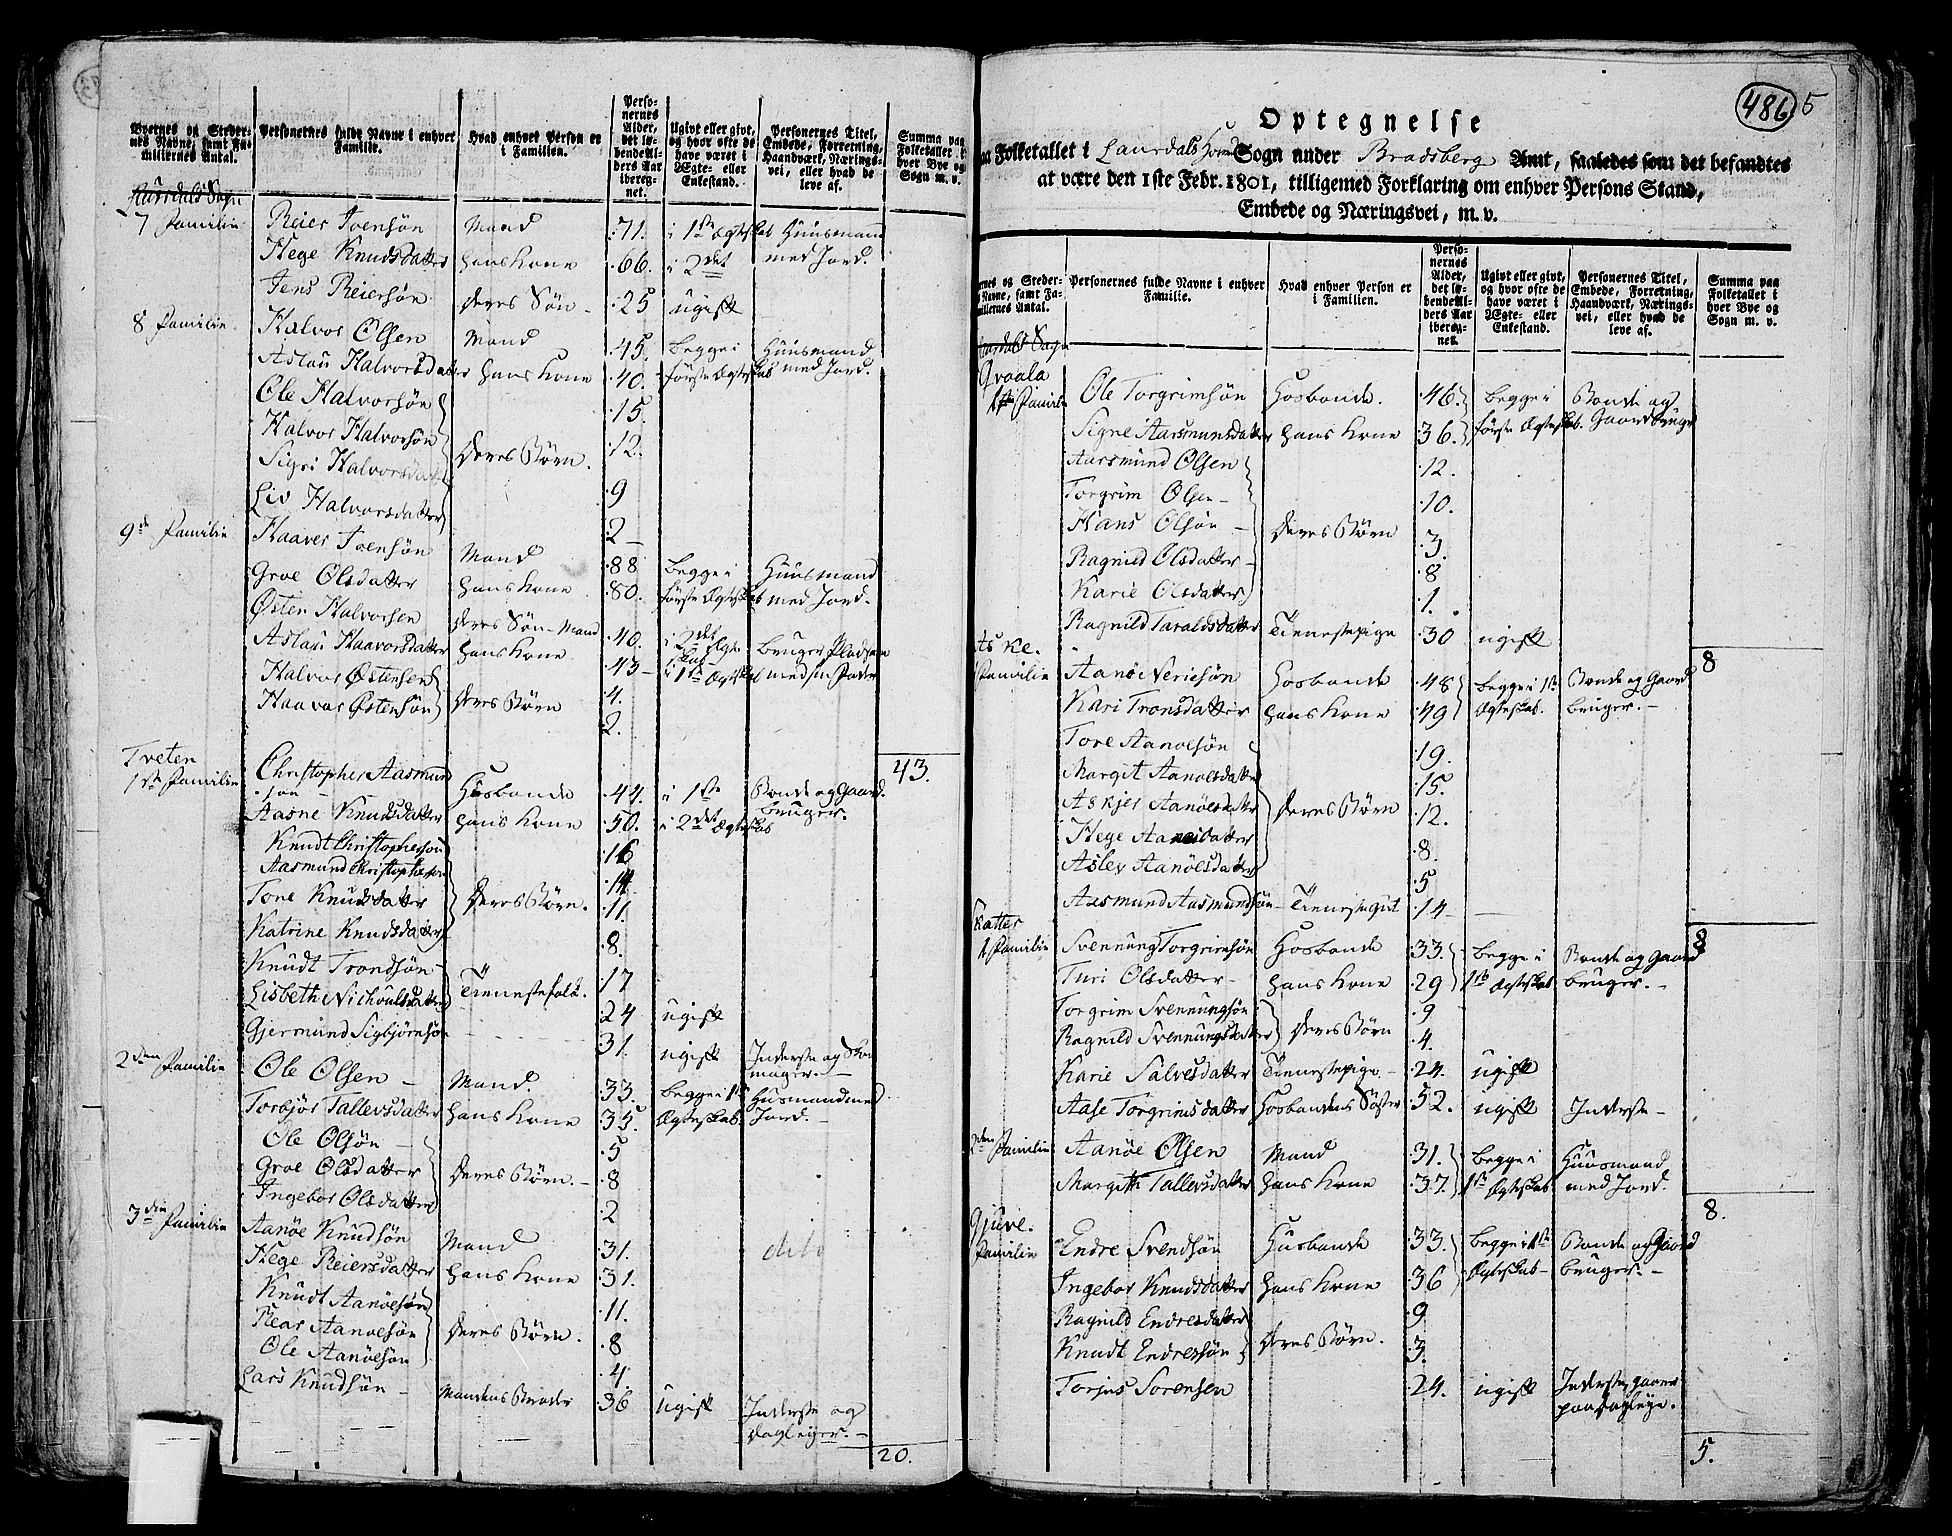 Byernes og Steder-
nes Navne, samt Fa-
miliernes Antal.
Personernes fulde Navne i enhver
Familie.
Hvad enhver Person er
i Familien.
Perso-
nernes
Alder,
det lø-
bende Al-
ders Aar
ibereg-
net.
Ugivt eller givt,
og hvor ofte de
have været i
Ægte- eller
Enkestand.
Personernes Titel,
Embede, Forretning,
Haandværk, Nærings-
vei, eller hvad de
leve af.
Summa paa
Folketallet i
hver Bye og
Sogn m. v.
Laurdals Sogn
7 Familie Reier Toensøn Mand 71. i 1ste Ægteskab Huusmand
Hege Knudsdatter hans Kone 66. i 2det med Jord.
Jens Reiersøn deres Søn 25 ugift
8 Familie Halvor Olsen Mand 45. Begge i Huusmand
Aslau Halvorsdatter hans Kone 40. første Ægteskab med Jord.
Ole Halvorsøn 15.
Halvor Halvorsøn 12.
Sigri Halvorsdat deres Børn. 9
Liv Halvorsdatter 2
9de Familie Haaver Toensøn Mand 88 Begge i Huusmand
Groe Olsdatter hans Kone 80. første Ægteskab med Jord.
Østen Halvorsen deres Søn - Mand 40. i 2det Ægteskab Bruger Pladsen
Aslau Haavorsdatter hans Kone 43 i 1ste Ægteskab med sin Fader
Halvor Østensen 4.
Haavor Østensøn deres Børn 2.
43.
Tveten
1ste Familie Christopher Aasmund
søn Husbonde 44. i 1ste Bonde og Gaard
Aasne Knudsdatter hans Kone 50. i 2det Ægteskab bruger.
Knudt Christophersøn 16
Aasmund Christophersøn 14.
Tone Knudsdatter deres Børn. 11.
Katrine Knudsdatter 8.
Knudt Trondsøn 17
Lisbeth Nichoulsdatter Tienestefolk. 24 ugift
Gjermund Sigbjørnsøn 31. ugift Inderste og Sko
mager.
2den Familie Ole Olsen Mand. 33. Begge i 1ste Husmand med
Torbjør Tallevsdatter hans Kone 35. Ægteskab Jord.
Ole Olsøn 5
Groe Olsdatter deres Børn. 8
Ingebor Olsdatter 2
3die Familie Aanøe Knudsøn Mand 31. dito
Hege Reiersdatter hans Kone 31.
Knudt Aanøesøn 11.
Rear Aanoesøn deres Børn. 8
Ole Aanøesøn 4.
Lars Knudsøn Mandens Broder 36 ugift Inderste og
dagleier.
20.
486 5
Optegnelse
paa Folketallet i Laurdals Hoved Sogn under Bradsberg Amt, saaledes som det befandtes
at være den 1ste Febr. 1801, tilligemed Forklaring om enhver Persons Stand,
Embede og Næringsvei, m. v.
Byernes og Steder-
nes Navne, samt Fa-
miliernes Antal.
Personernes fulde Navne i enhver
Familie.
Hvad enhver Person er
i Familien.
Perso-
nernes
Alder,
det lø-
bende Al-
ders Aar
ibereg-
net.
Ugivt eller givt,
og hvor ofte de
have været i
Ægte- eller
Enkestand.
Personernes Titel,
Embede, Forretning,
Haandværk, Nærings-
vei, eller hvad de
leve af.
Summa paa
Folketallet i
hver Bye og
Sogn m. v.
Laurdals Sogn
Qvaala
1ste Familie Ole Torgrimsøn Hosbonde. 46. Begge i Bonde og
Signe Aarsmunsdatter hans Kone 36. første Ægteskab. Gaardbruger
Aarsmund Olsen 12.
Torgrim Olsen 10.
Hans Olsøn deres Børn 3.
Ragnild Olsdatter 8
Karie Olsdatter 1.
Ragnild Taraldsdatter Tienestepige 30 ugift
8
Aske.
Familie Aanøe Neriesøn Hosbonde 48 Begge i 1ste Bonde og Gaard
Kari Tronsdatter hans Kone 49 Ægteskab. bruger.
Tore Aanoesøn 19.
Margit Aanoesdatter 15.
Askjer Aanøesdatter deres Børn 12.
Hege Aanøesdatter 8.
Aslev Aanøesdatter 5
Aasmund Aasmundsøn Tienestegut 14
8
Katter
1 Familie Svennung Torgrimsøn Hosbonde 33. Begge i Bonde og Gaard
Turi Olsdatter hans Kone 29 1ste Ægteskab bruger.
Torgrim Svennungsøn 9
Ragnild Svennungsdatter deres Børn 4.
Karie Salvesdatter Tienestepige. 24. ugift
Aase Torgrimsdatter Hosbondens Søster 52. ugift Inderste
2den Familie Aanøe Olsen Mand 31. Begge i Huusmand
Margith Tallevsdatter hans Kone 37. 1ste Ægteskab med Jord.
8.
Gjuve.
Familie Endre Svendsøn Husbonde 33. Begge i 1ste Bonde og Gaard
Ingebor Knudsdatter hans Kone 36 Ægteskab bruger.
Ragnild Endresdatter 9
Knudt Endresøn deres Børn. 3.
Torjus Sorensen 24. ugift Inderste gaaer
paa dagleye.
5.